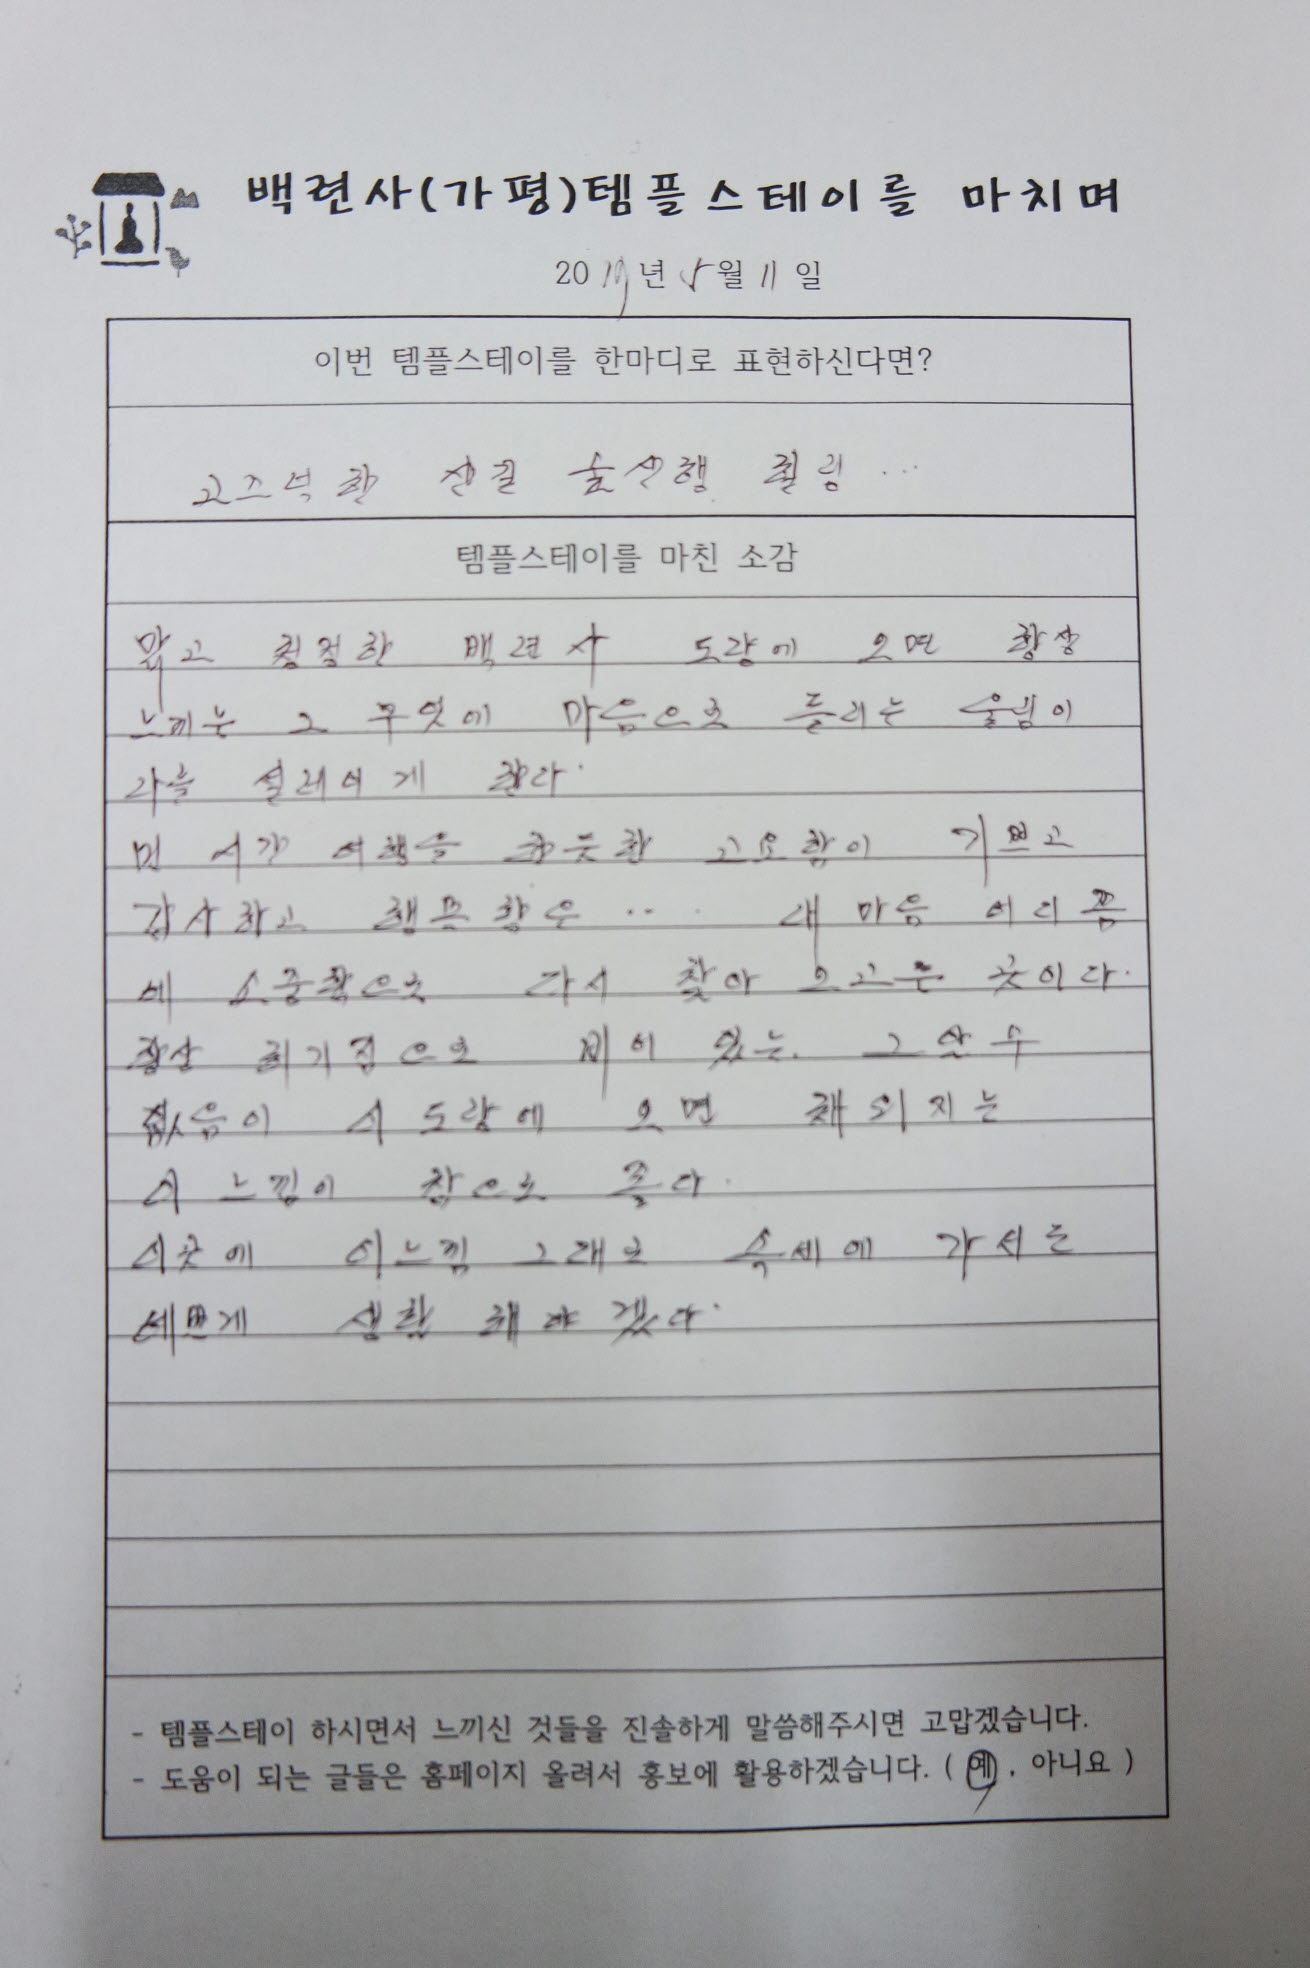 백련사(가평)템플스테이를 마치며
2019년 5월 11일
이번 템플스테이를 한마디로 표현하신다면?
고즈넉한 산길 숲산행 힐링 ...
템플스테이를 마친 소감
맑고 청정한 백련사 도량에 오면 항상
느끼는 그 무엇에 마음으로 들리는 울림이
나를 설레이게 한다.
먼 시간 여행을 한듯한 고요함이 기쁘고
감사하고 행복함은 ... 내 마음 어디쯤
에 소중함으로 다시 찾아 오고픈 곳이다.
항상 허기짐으로 비어 있는. 그 알수
없음이 이 도량에 오면 채워지는
이 느낌이 참으로 좋다.
이곳에 이느낌 그대로 속세에 가서는
예쁘게 생활 해야 겠다.
- 템플스테이 하시면서 느끼신 것들을 진솔하게 말씀해주시면 고맙겠습니다.
- 도움이 되는 글들은 홈페이지 올려서 홍보에 활용하겠습니다. ( 예 , 아니요 )